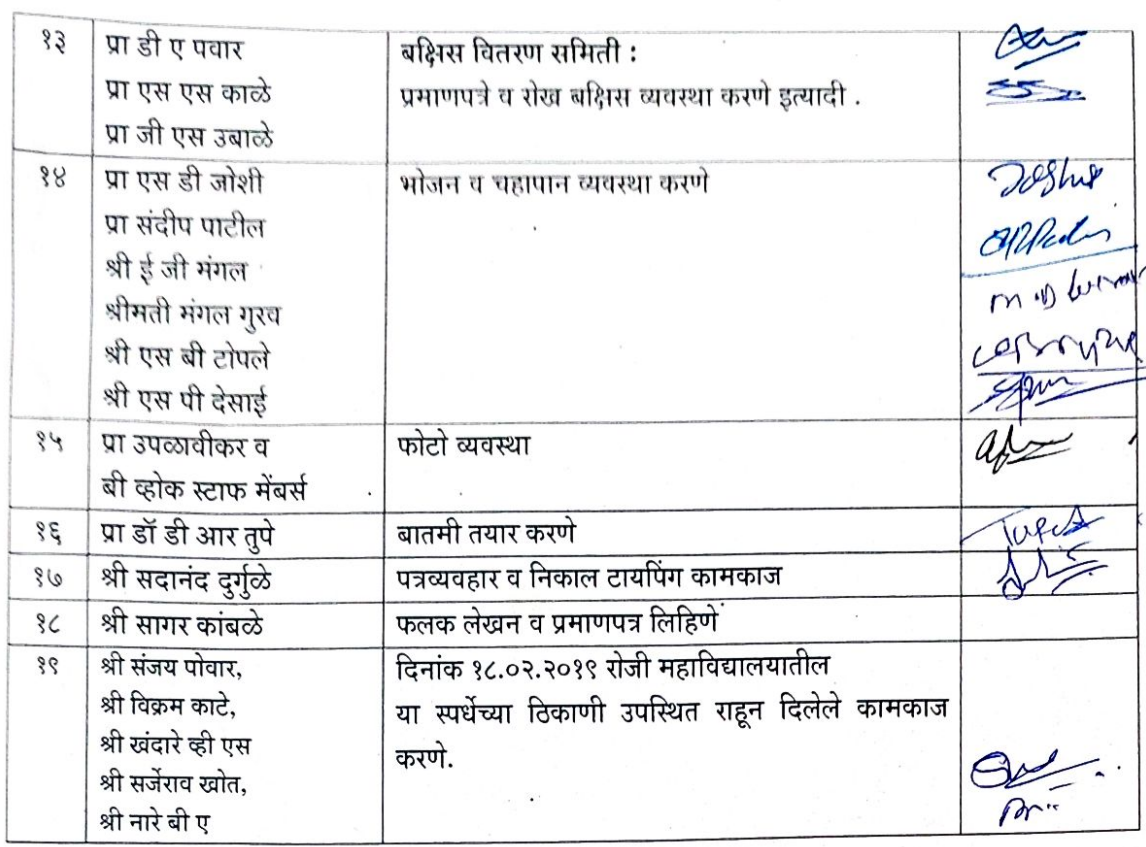 १३
प्रा डी ए पवार
प्रा एस एस काळे
प्रा जी एस उबाळे
बक्षिस वितरण समिती :
प्रमाणपत्रे व रोख बक्षिस व्यवस्था करणे इत्यादी .
१४
प्रा एस डी जोशी
प्रा संदीप पाटील
श्री ई जी मंगल
श्रीमती मंगल गुरव
श्री एस बी टोपले
श्री एस पी देसाई
भोजन व चहापान व्यवस्था करणे
१५
प्रा उपळावीकर व
बी व्होक स्टाफ मेंबर्स
फोटो व्यवस्था
१६
प्रा डॉ डी आर तुपे
बातमी तयार करणे
१७
श्री सदानंद दुर्गुळे
पत्रव्यवहार व निकाल टायपिंग कामकाज
१८
श्री सागर कांबळे
फलक लेखन व प्रमाणपत्र लिहिणे
१९
श्री संजय पोवार,
श्री विक्रम काटे,
श्री खंदारे व्ही एस
श्री सर्जेराव खोत,
श्री नारे बी ए
दिनांक १८.०२.२०१९ रोजी महाविद्यालयातील
या स्पर्धेच्या ठिकाणी उपस्थित राहून दिलेले कामकाज
करणे.